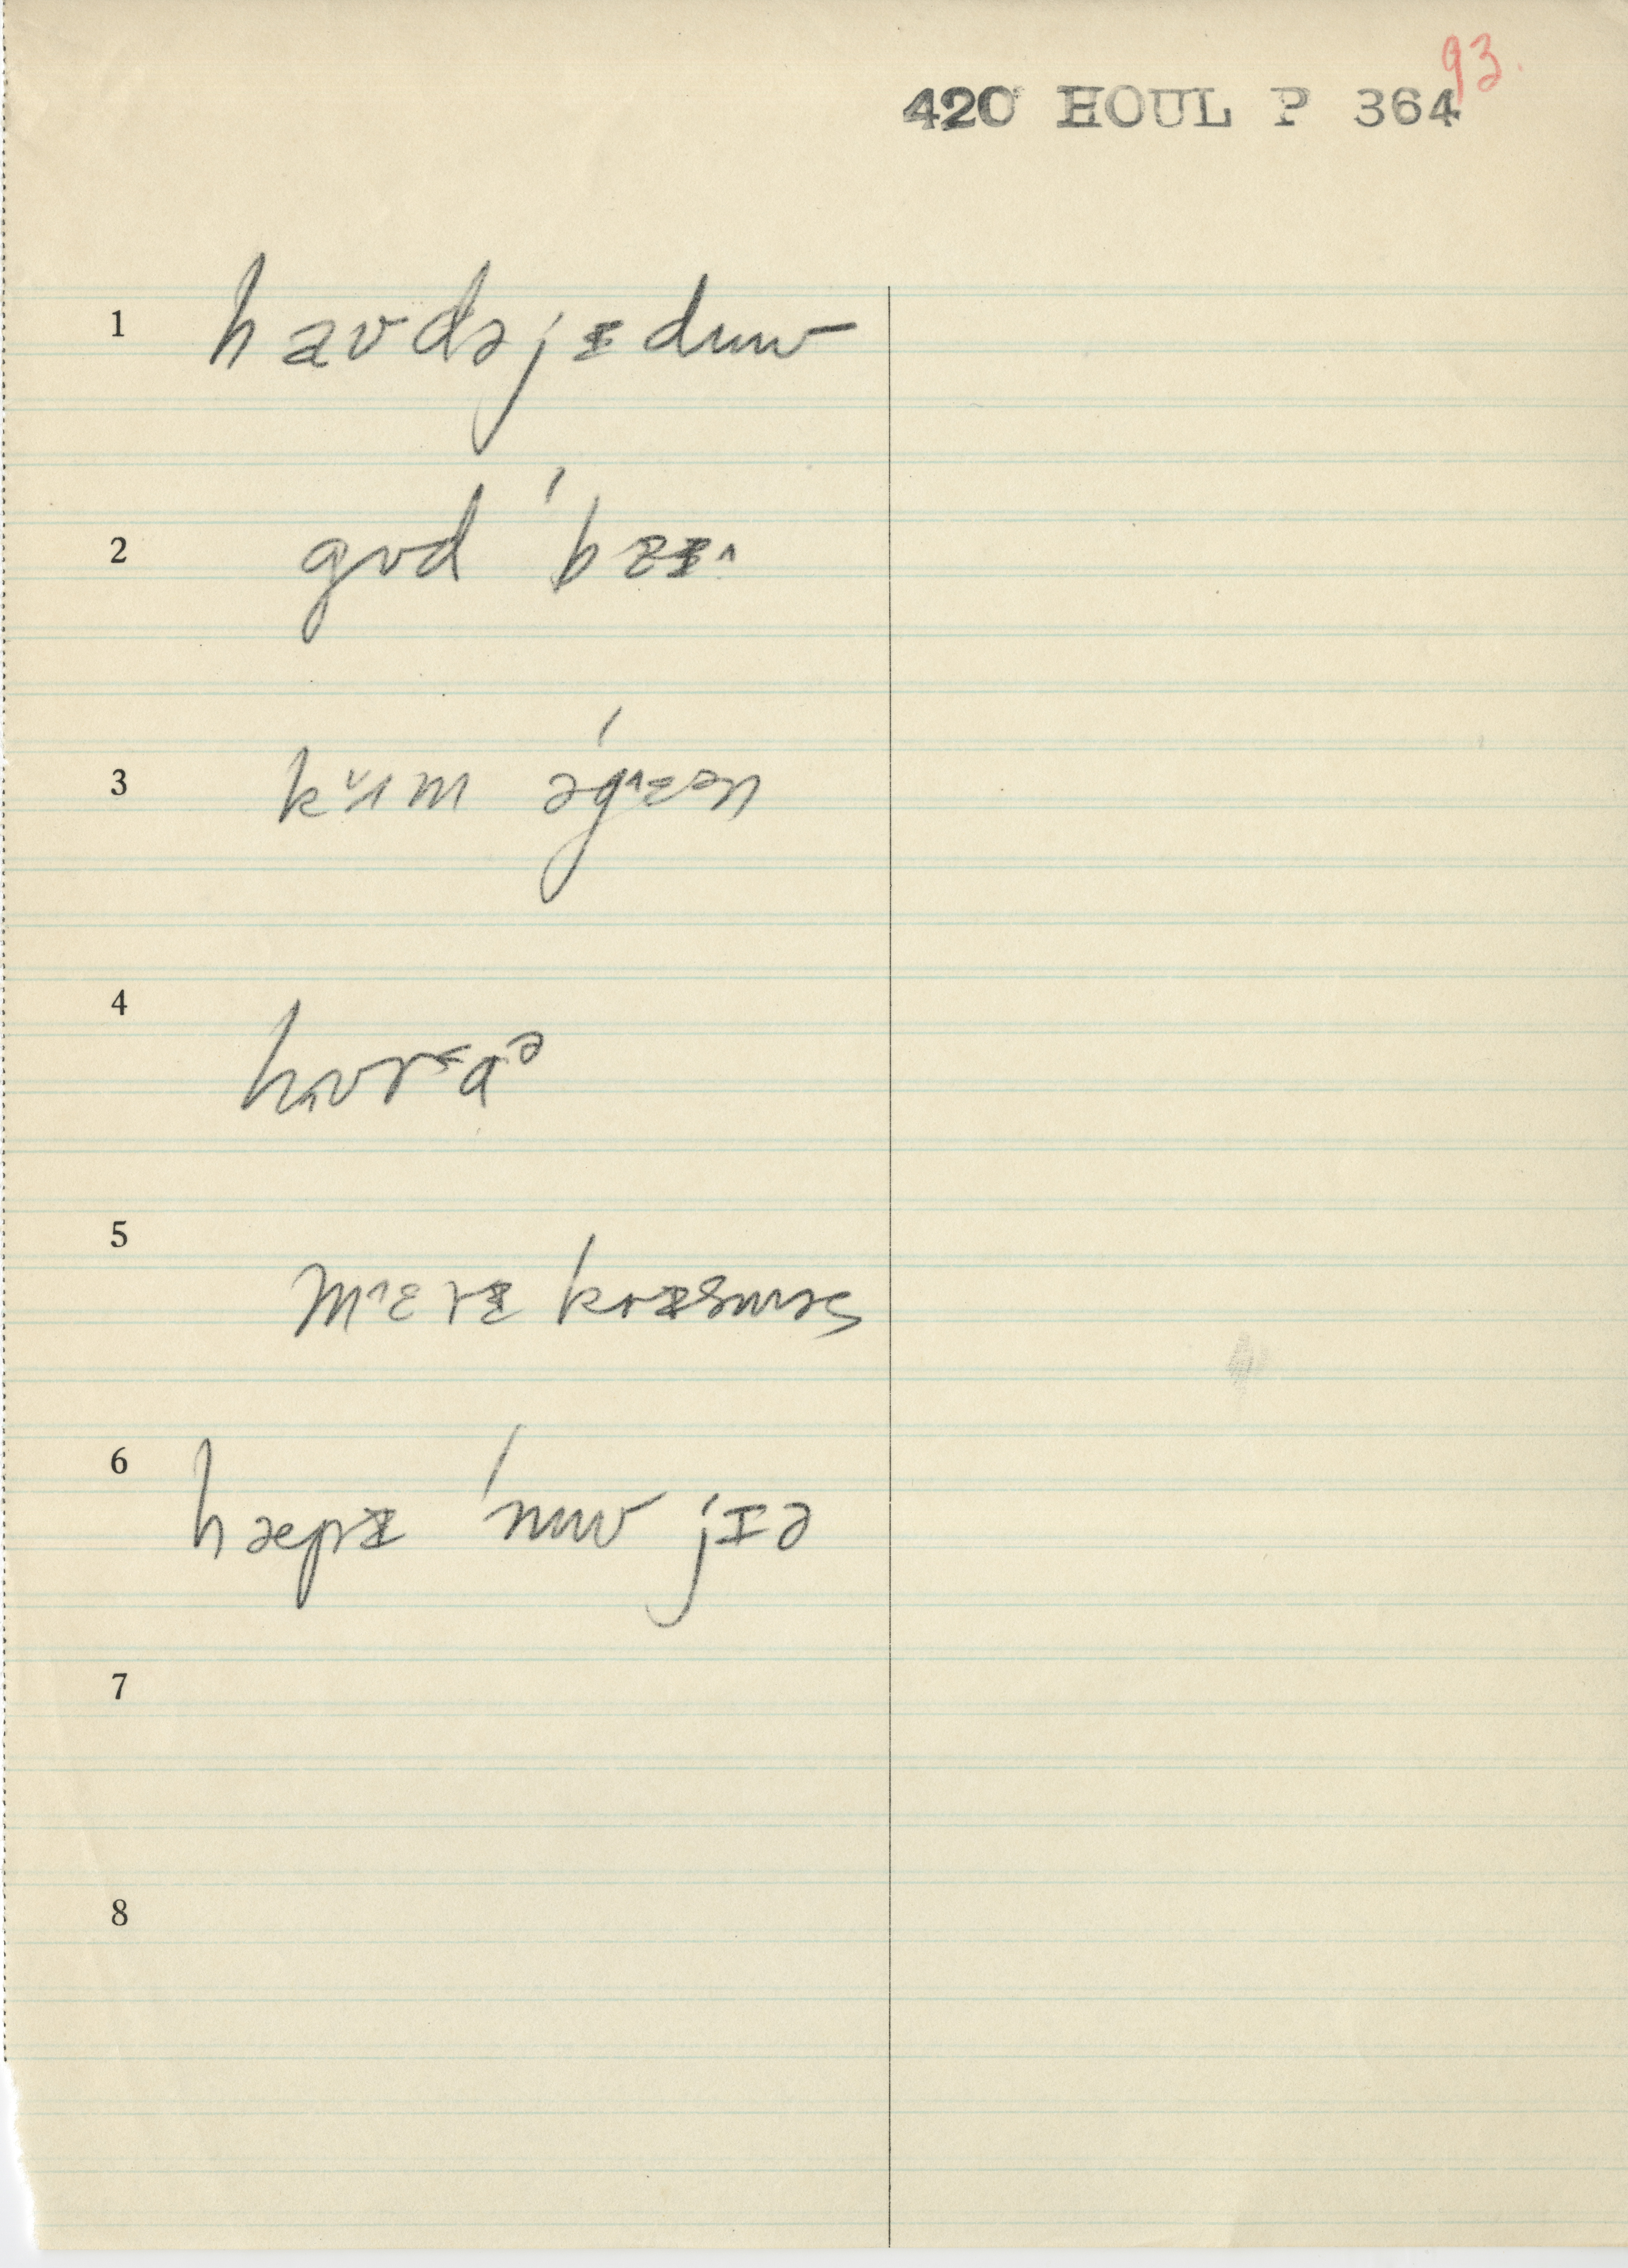 93.
420 HOUL P 364
1 hæʊdəjɪ̵duʊ
2 gʊd ˈbaɪ̵
3 kʌm əˈgɛən
4
5 mɛrɪ̵ krɪ̵sməs
6 hæpɪ̵ ˈnuʊ jɪə
7
8